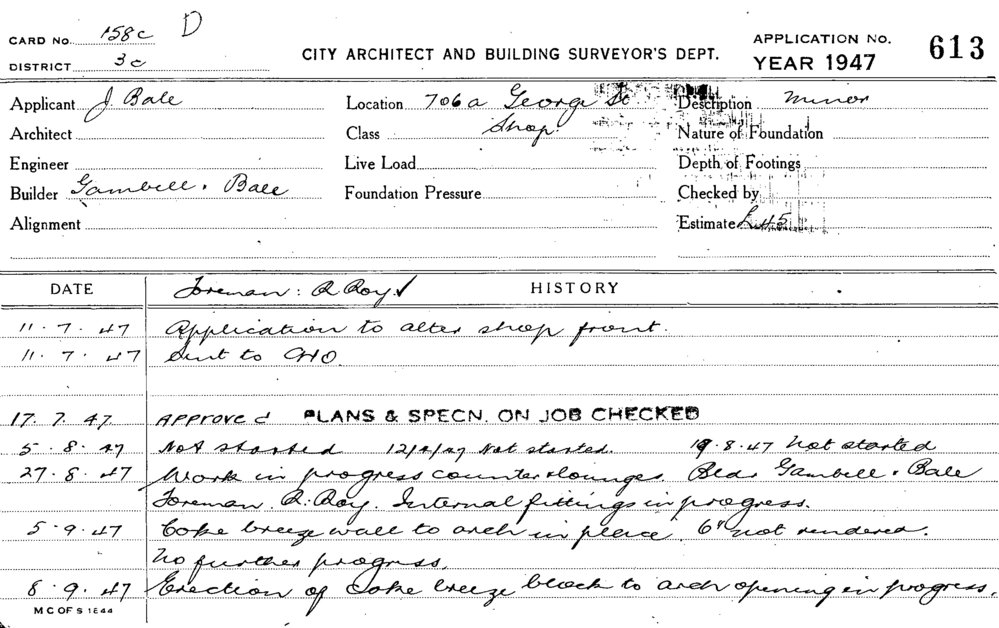 CARD No. 158c D
DISTRICT 3c
CITY ARCHITECT AND BUILDING SURVEYOR'S DEPT.
APPLICATION No. 613
YEAR 1947
Applicant J. Bale
Location 706a George St
Description Minor
Architect
Class Shop
Nature of Foundation
Engineer
Live Load
Depth of Footings
Builder Gambell & Bale
Foundation Pressure
Checked by
Alignment
Estimate £45
DATE Foreman: R Roy ✓ HISTORY
11.7.47 Application to alter shop front.
11.7.47 Sent to CHO
17.7.47 APPROVEd PLANS & SPECN. ON JOB CHECKED
5.8.47 Not started 12/8/47 Not started. 19.8.47 Not started
27.8.47 Work in progress counter & lounges. Bldr Gambell & Bale
Foreman. R. Roy. Internal fittings in progress.
5.9.47 Coke breeze wall to arch in place. 6" not rendered.
No further progress.
8.9.47 Erection of Coke breeze block to arch opening in progress.
M C OF S 1844